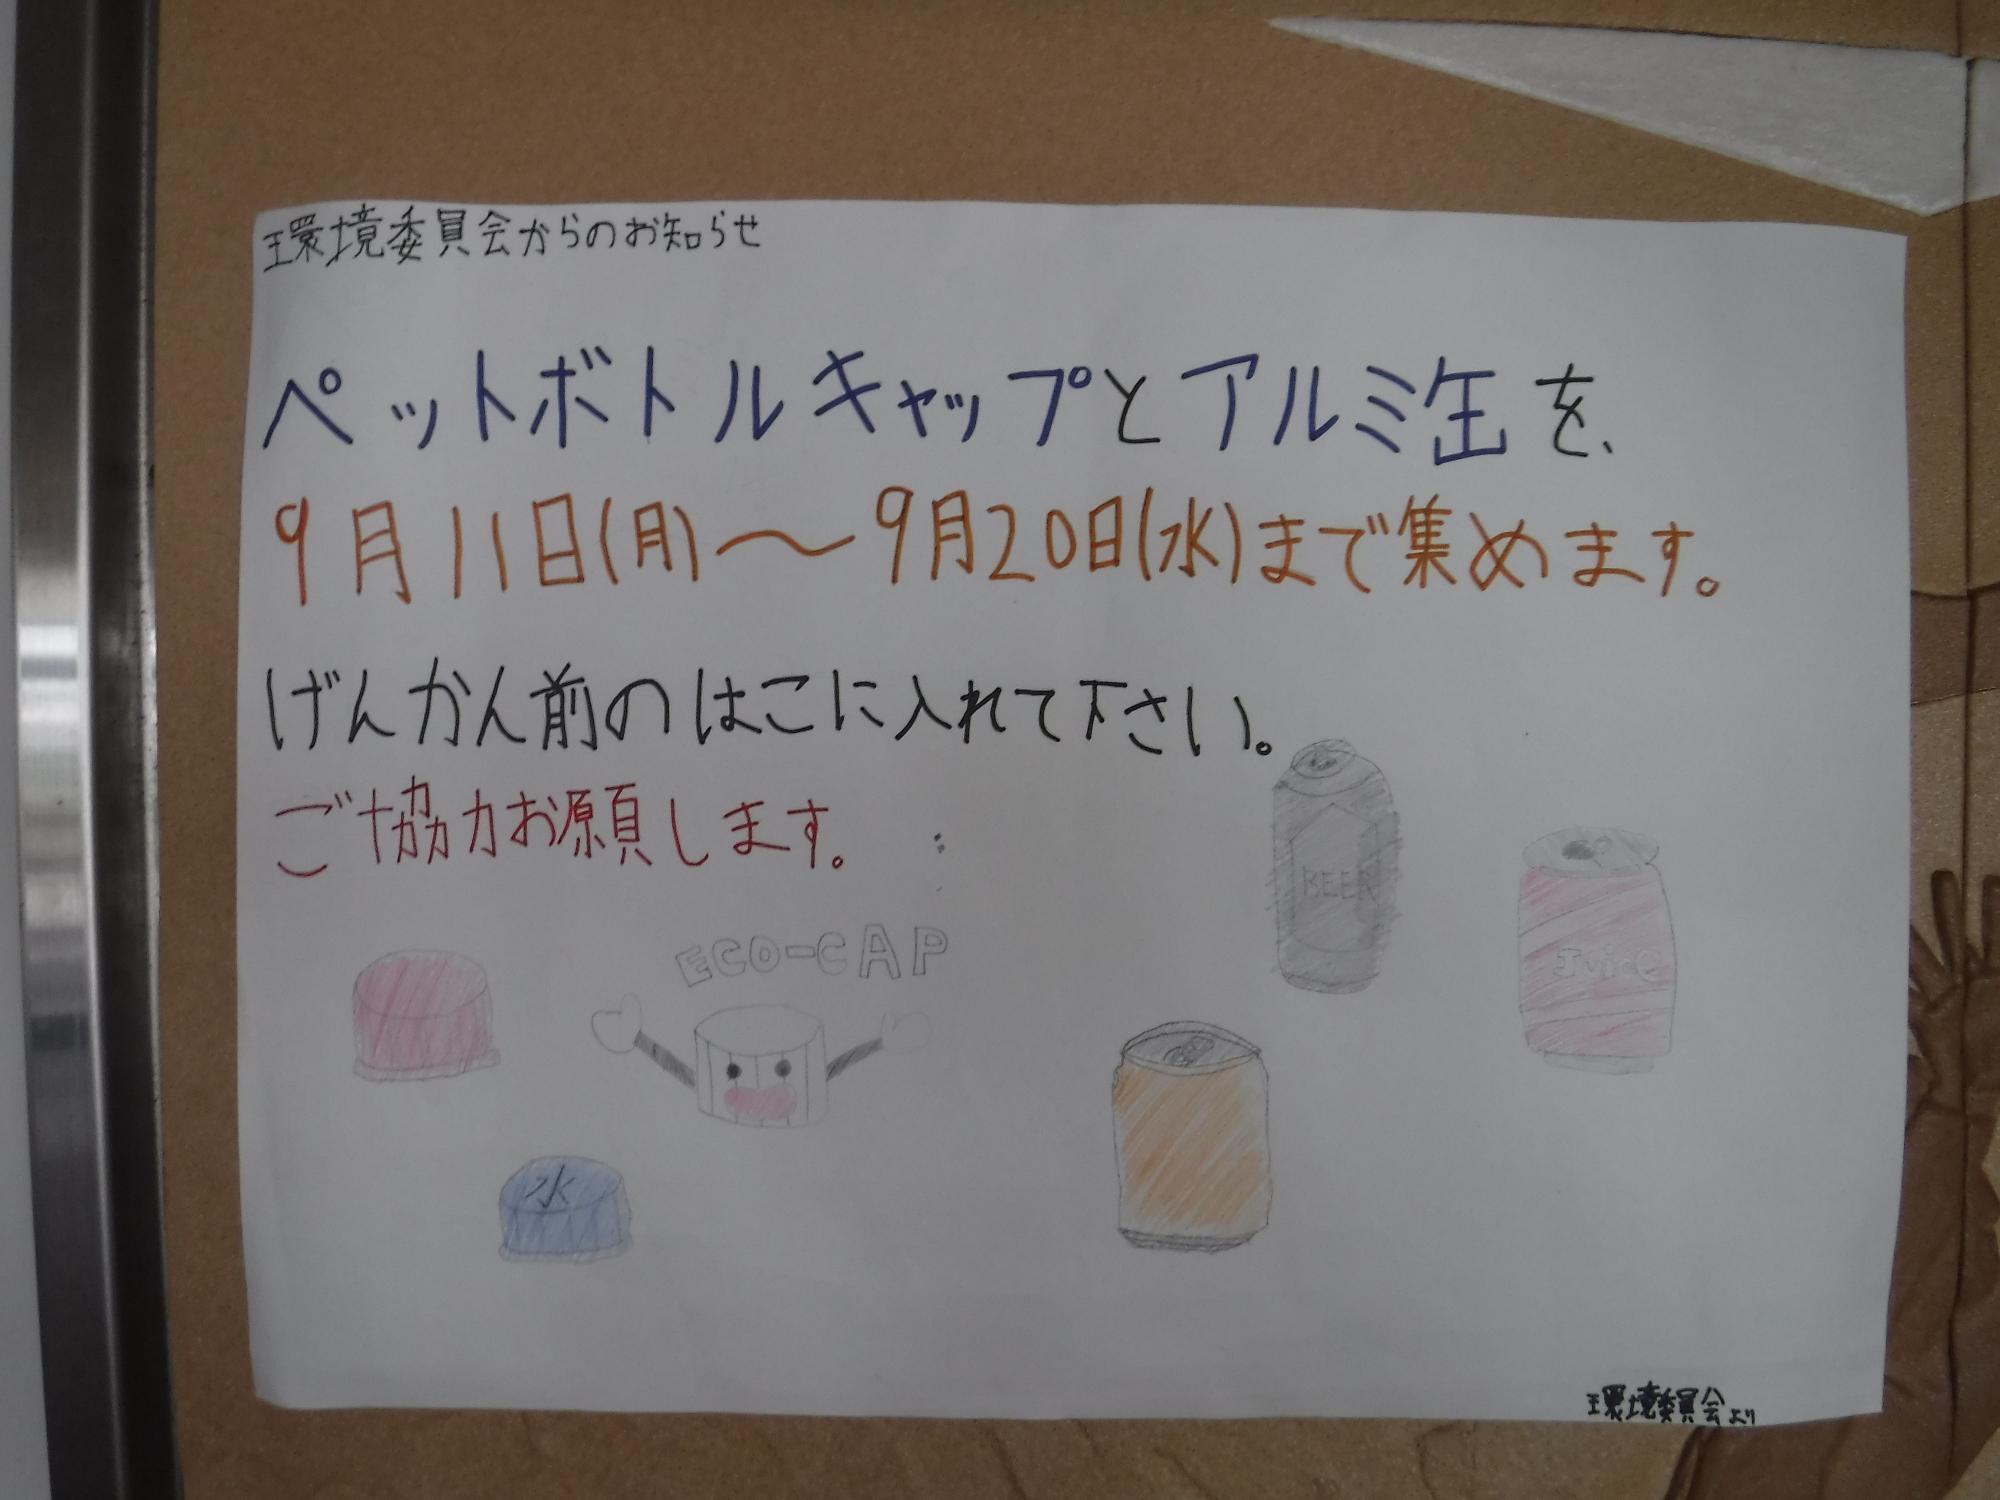 環境委員会からのお知らせ
ペットボトルキャップとアルミ缶を、
9月11日(月)～9月20日(水)まで集めます。
げんかん前のはこに入れて下さい。
ご協力お願します。
BEER
Juice
ECO-CAP
水
環境委員会より